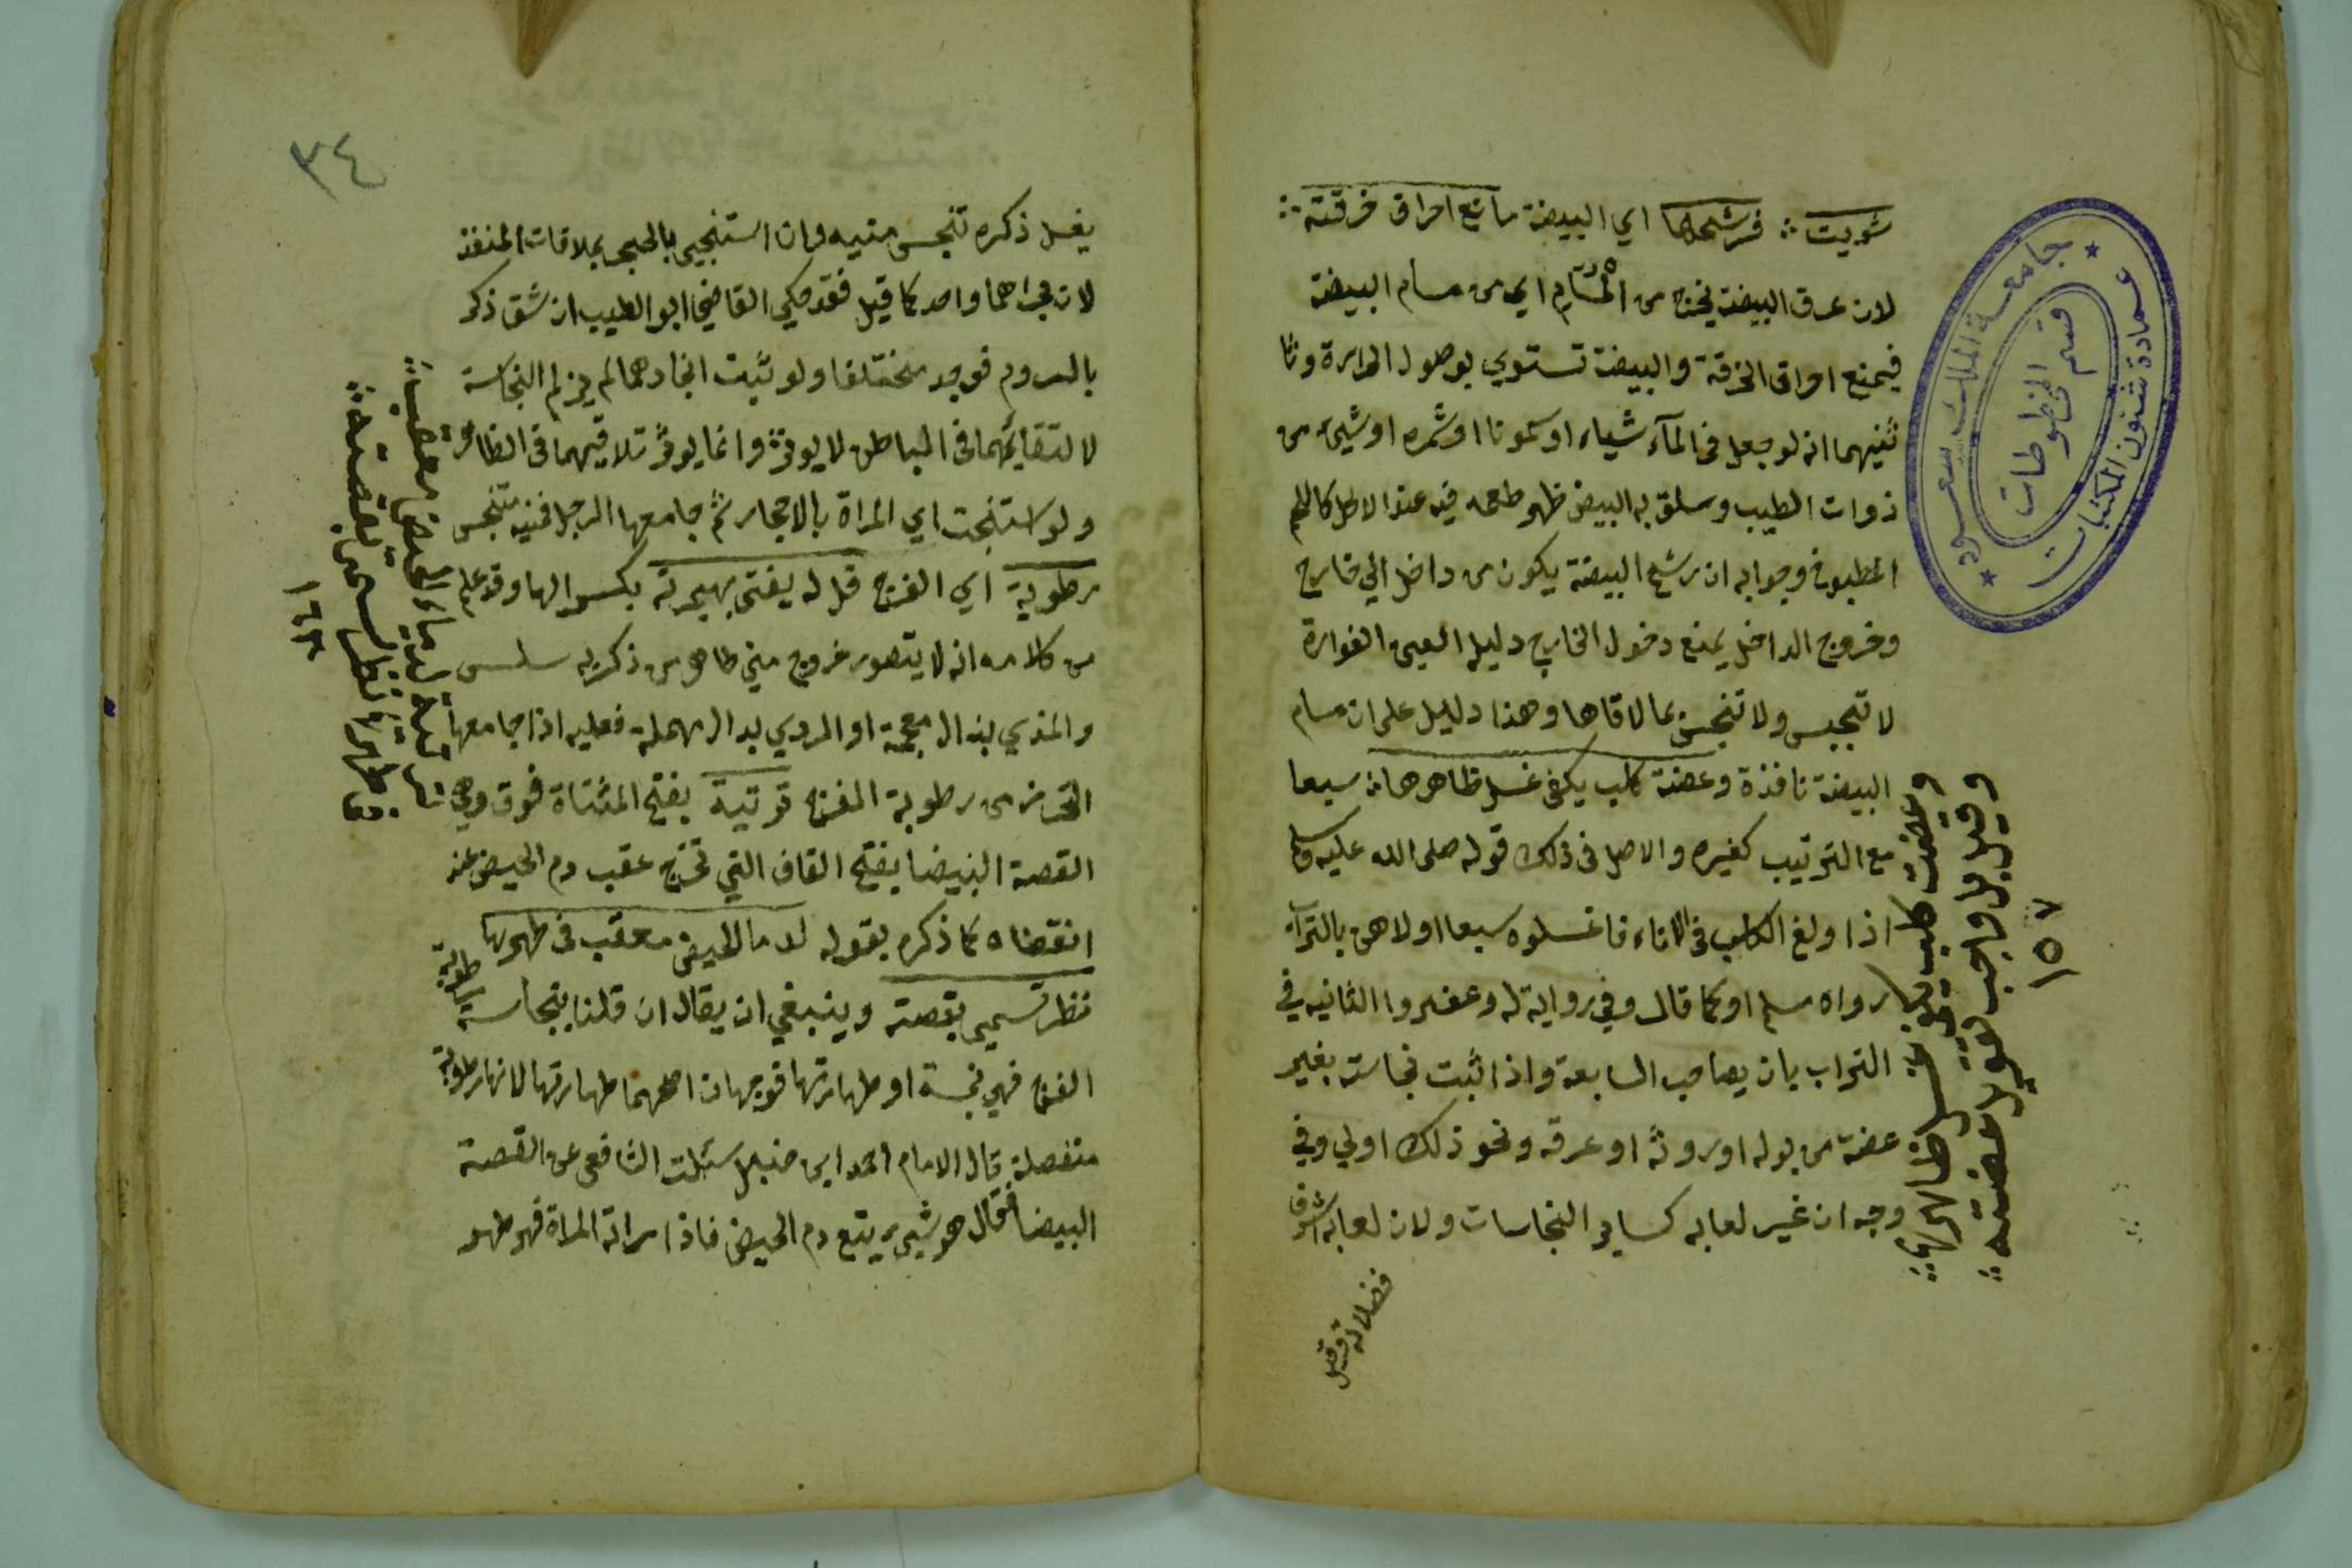 شويت ؞ فرشحها اي البيضة مانع احراق خرقته ؞
لان عرق البيضة يخرج من المسام اي من مسام البيضة
فيمنع احراق الخرقة والبيضة تستوي بوصول الحرارة وثا
ثنيهما انه لو جعل في المآء شياء او كمونا او ثمره او شيئ من
ذوات الطيب وسلق به البيض ظهر طعمه فيه عند الاكل كاللحم
المطبوخ وجوابه ان رشح البيضة يكون من داخل الي خارج
وخروج الداخل يمنع دخول الخارج دليله العين الفوارة
لا تنجس ولا تنجس بما لاقاها وهذا دليل على ان مسام
البيضة نافذة وعضة كلب يكفي غسل ظاهرها سبعا
مع الترتيب كغيره والاصل في ذلك قوله صلى الله عليه وسلم
اذا ولغ الكلب في الاناء فاغسلوه سبعا اولاهن بالتراب
رواه مسلم او كما قال وفي رواية له وعفروا الثانيه في
التراب بان يصاحب السابعة واذا ثبت نجاسته بغير
عضة من بوله او روثه او عرقه ونحو ذلك اولي وفي
وجه ان غير لعابه كساير النجاسات ولان لعابه اشرف
فضلاته وقيل
وعضت كلب يكفي غسل ظاهرها ؞
وقيل بل واجب تقوير عضته ؞
١٥٧
جامعة الملك سعود
عمادة شئون المكتبات
قسم المخطوطات
٣٤
يغسل ذكره تنجس منيه وان استنجي بالحجر بملاقات المنفذ
لان مجراهما واحد كما قيل فقد حكي القاضي ابو الطيب ان شق ذكر
بالروم فوجد مختلفا ولو ثبت اتحادهما لم يلزم النجاسة
لا لتقائهما في الباطن لا يوثر وانما يوثر تلاقيهما في الظاهر
ولو استنجت اي المراة بالاحجار ثم جامعها الرجل فمنيه متنجس
رطوبة اي الفرج قل له يفتى بهجرته بكسر الها وقد علم
من كلامه انه لا يتصور خروج مني طاهر من ذكر به سلس
والمذي بذال معجمة او الودي بدال مهملة فعليه اذا جامعها
التحرز من رطوبة الفرج تريية بفتح المثناة فوق وهي
القصة البيضا بفتح القاف التي تخرج عقب دم الحيض عند
انقضاه كما ذكره بقوله لدم الحيض معقب في طهرها
نظر تسمى بقصة وينبغي ان يقال ان قلنا بنجاسة رطوبة
الفرج فهي نجسة او طهارتها فوجهان اصحهما طهارتها لانها رطوبة
منفصلة قال الامام احمد ابن حنبل سئلت الشافعي عن القصة
البيضا فقال هو شيي يتبع دم الحيض فاذا راته المراة فهو طهر
معقب ؞
في طهرها نظر تسمى بقصته ؞
١٦٣